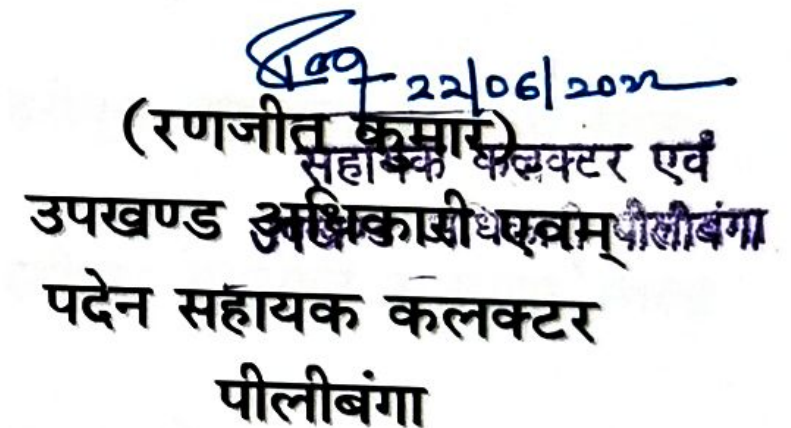 22/06/2022
(रणजीत कुमार)
सहायक कलक्टर एवं
उपखण्ड अधिकारी एवम्
पीलीबंगा
पदेन सहायक कलक्टर
पीलीबंगा